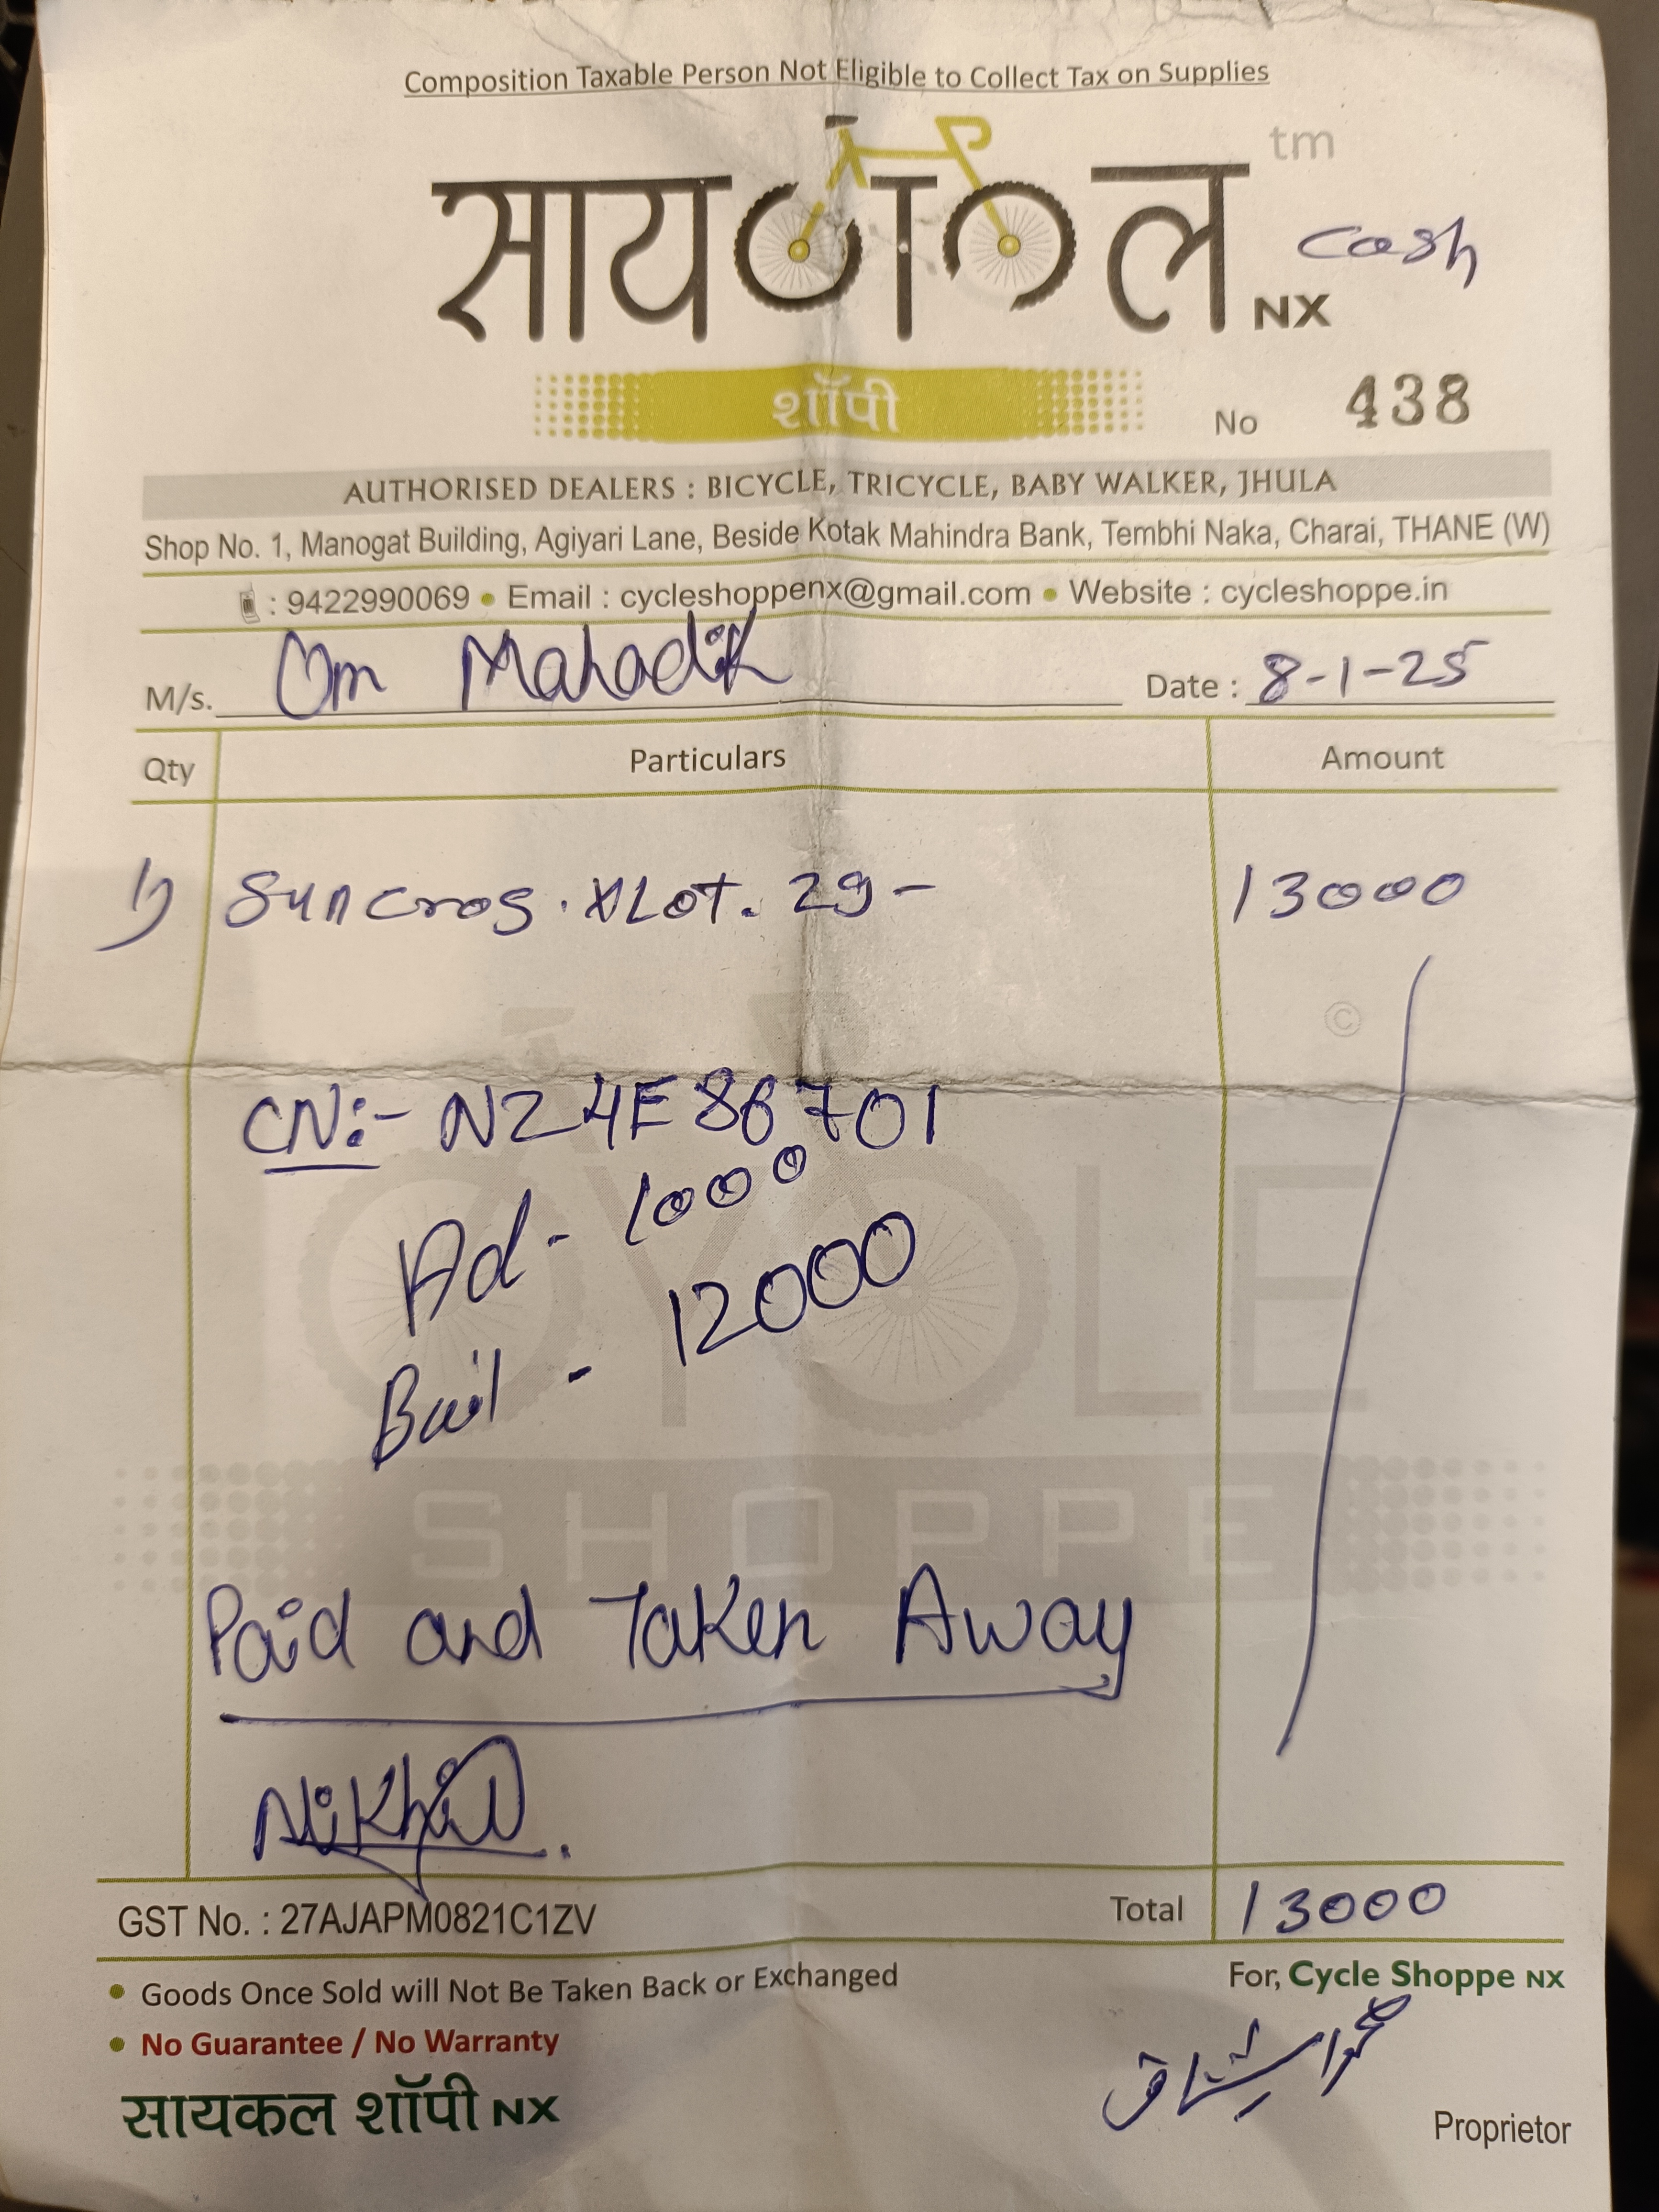 Composition Taxable Person Not Eligible to Collect Tax on Supplies
सायकल NX tm
Cash
शॉपी
No 438
AUTHORISED DEALERS : BICYCLE, TRICYCLE, BABY WALKER, JHULA
Shop No. 1, Manogat Building, Agiyari Lane, Beside Kotak Mahindra Bank, Tembhi Naka, Charai, THANE (W)
: 9422990069 • Email : cycleshoppenx@gmail.com • Website : cycleshoppe.in
M/s. Om Mahadik Date : 8-1-25
Qty Particulars Amount
1) Suncros. XLOT. 29 - 13000
©
CN:- N24E86701
Ad - 1000
Bail - 12000
CYCLE
SHOPPE
Paid and Taken Away
Nikhil
GST No. : 27AJAPM0821C1ZV Total 13000
• Goods Once Sold will Not Be Taken Back or Exchanged For, Cycle Shoppe NX
• No Guarantee / No Warranty
सायकल शॉपी NX Proprietor